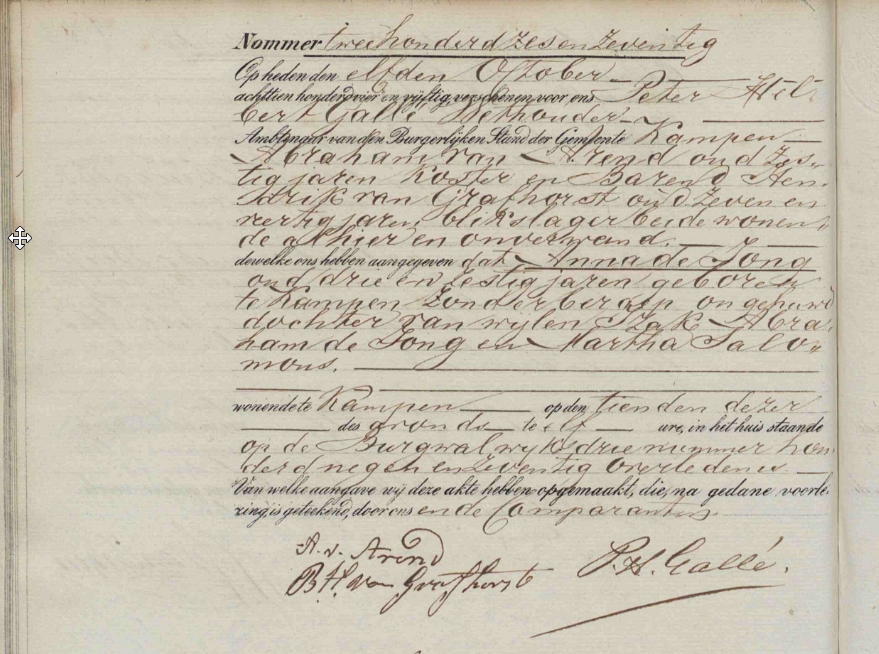 Nommer tweehonderd zes en zeventig
Op heden den elfden October
achttien honderd vier en vijftig, verschenen voor ons Peter Hil
bert Gallé Wethouder
Ambtenaar van den Burgerlijken Stand der Gemeente Kampen
Abraham van Arend oud zes-
tig jaren Koster en Barend Hen-
drik van Grafhorst oud zeven en
veertig jaren blikslager beide wonen
de alhier en onverwand.
dewelke ons hebben aangegeven dat Anna de Jong
oud drie en zestig jaren geboren
te Kampen zonder beroep ongehuwd
dochter van wijlen Izak Abra
ham de Jong en Martha Salo-
mons.
wonende te Kampen op den tienden dezer
des avonds te elf ure, in het huis staande
op de Burgwal wijk drie nummer hon
derd negen en zeventig overleden is
Van welke aangave wij deze akte hebben opgemaakt, die, na gedane voorle-
zing is geteekend, door ons en de Comparanten.
A. v. Arend
B H van Grafhorst
P. H. Gallé.